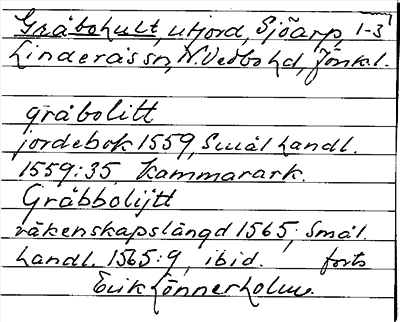 Gråbohult, utjord, Sjöarp, 1-3
Linderås sn, N. Vedbo hd, Jönk.l.
gråbolitt
jordebok 1559, Smål. handl.
1559:35, Kammarark.
Gråbbolijtt
räkenskapslängd 1565, Smål.
handl. 1565:9, ibid. forts
Erik Lönnerholm.